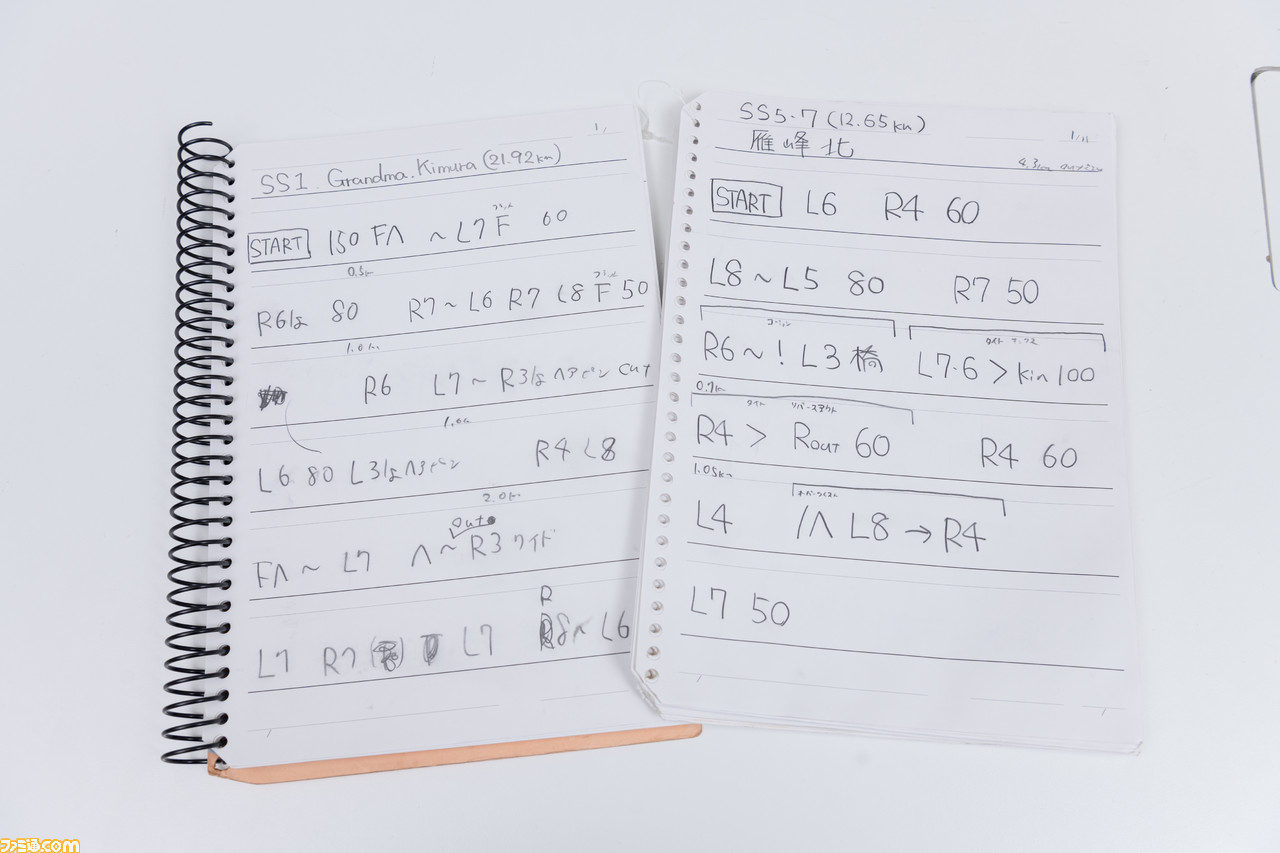 1/
SS1. Grandma.Kimura (21.92km)
START 150 F∧ ~ L7 F 60
0.5k
R6 80 R7~L6 R7 L8 F 50
1.0k
R6 L7~R3 ヘアピン CUT
1.0k
L6 80 L3 ヘアピン R4 L8
2.0k
Out
F∧~L7 ∧~R3 ワイド
R
L7 R7 L7 8~L6
SS5.7 (12.65km)
1/11
雁峰北
START L6 R4 60
L8~L5 80 R7 50
R6~! L3 橋 L7.6 > Kin 100
0.7k
タイト リバースアウト
R4 > ROUT 60 R4 60
1.05k
L4 /∧ L8 → R4
L7 50
ファミ通.com